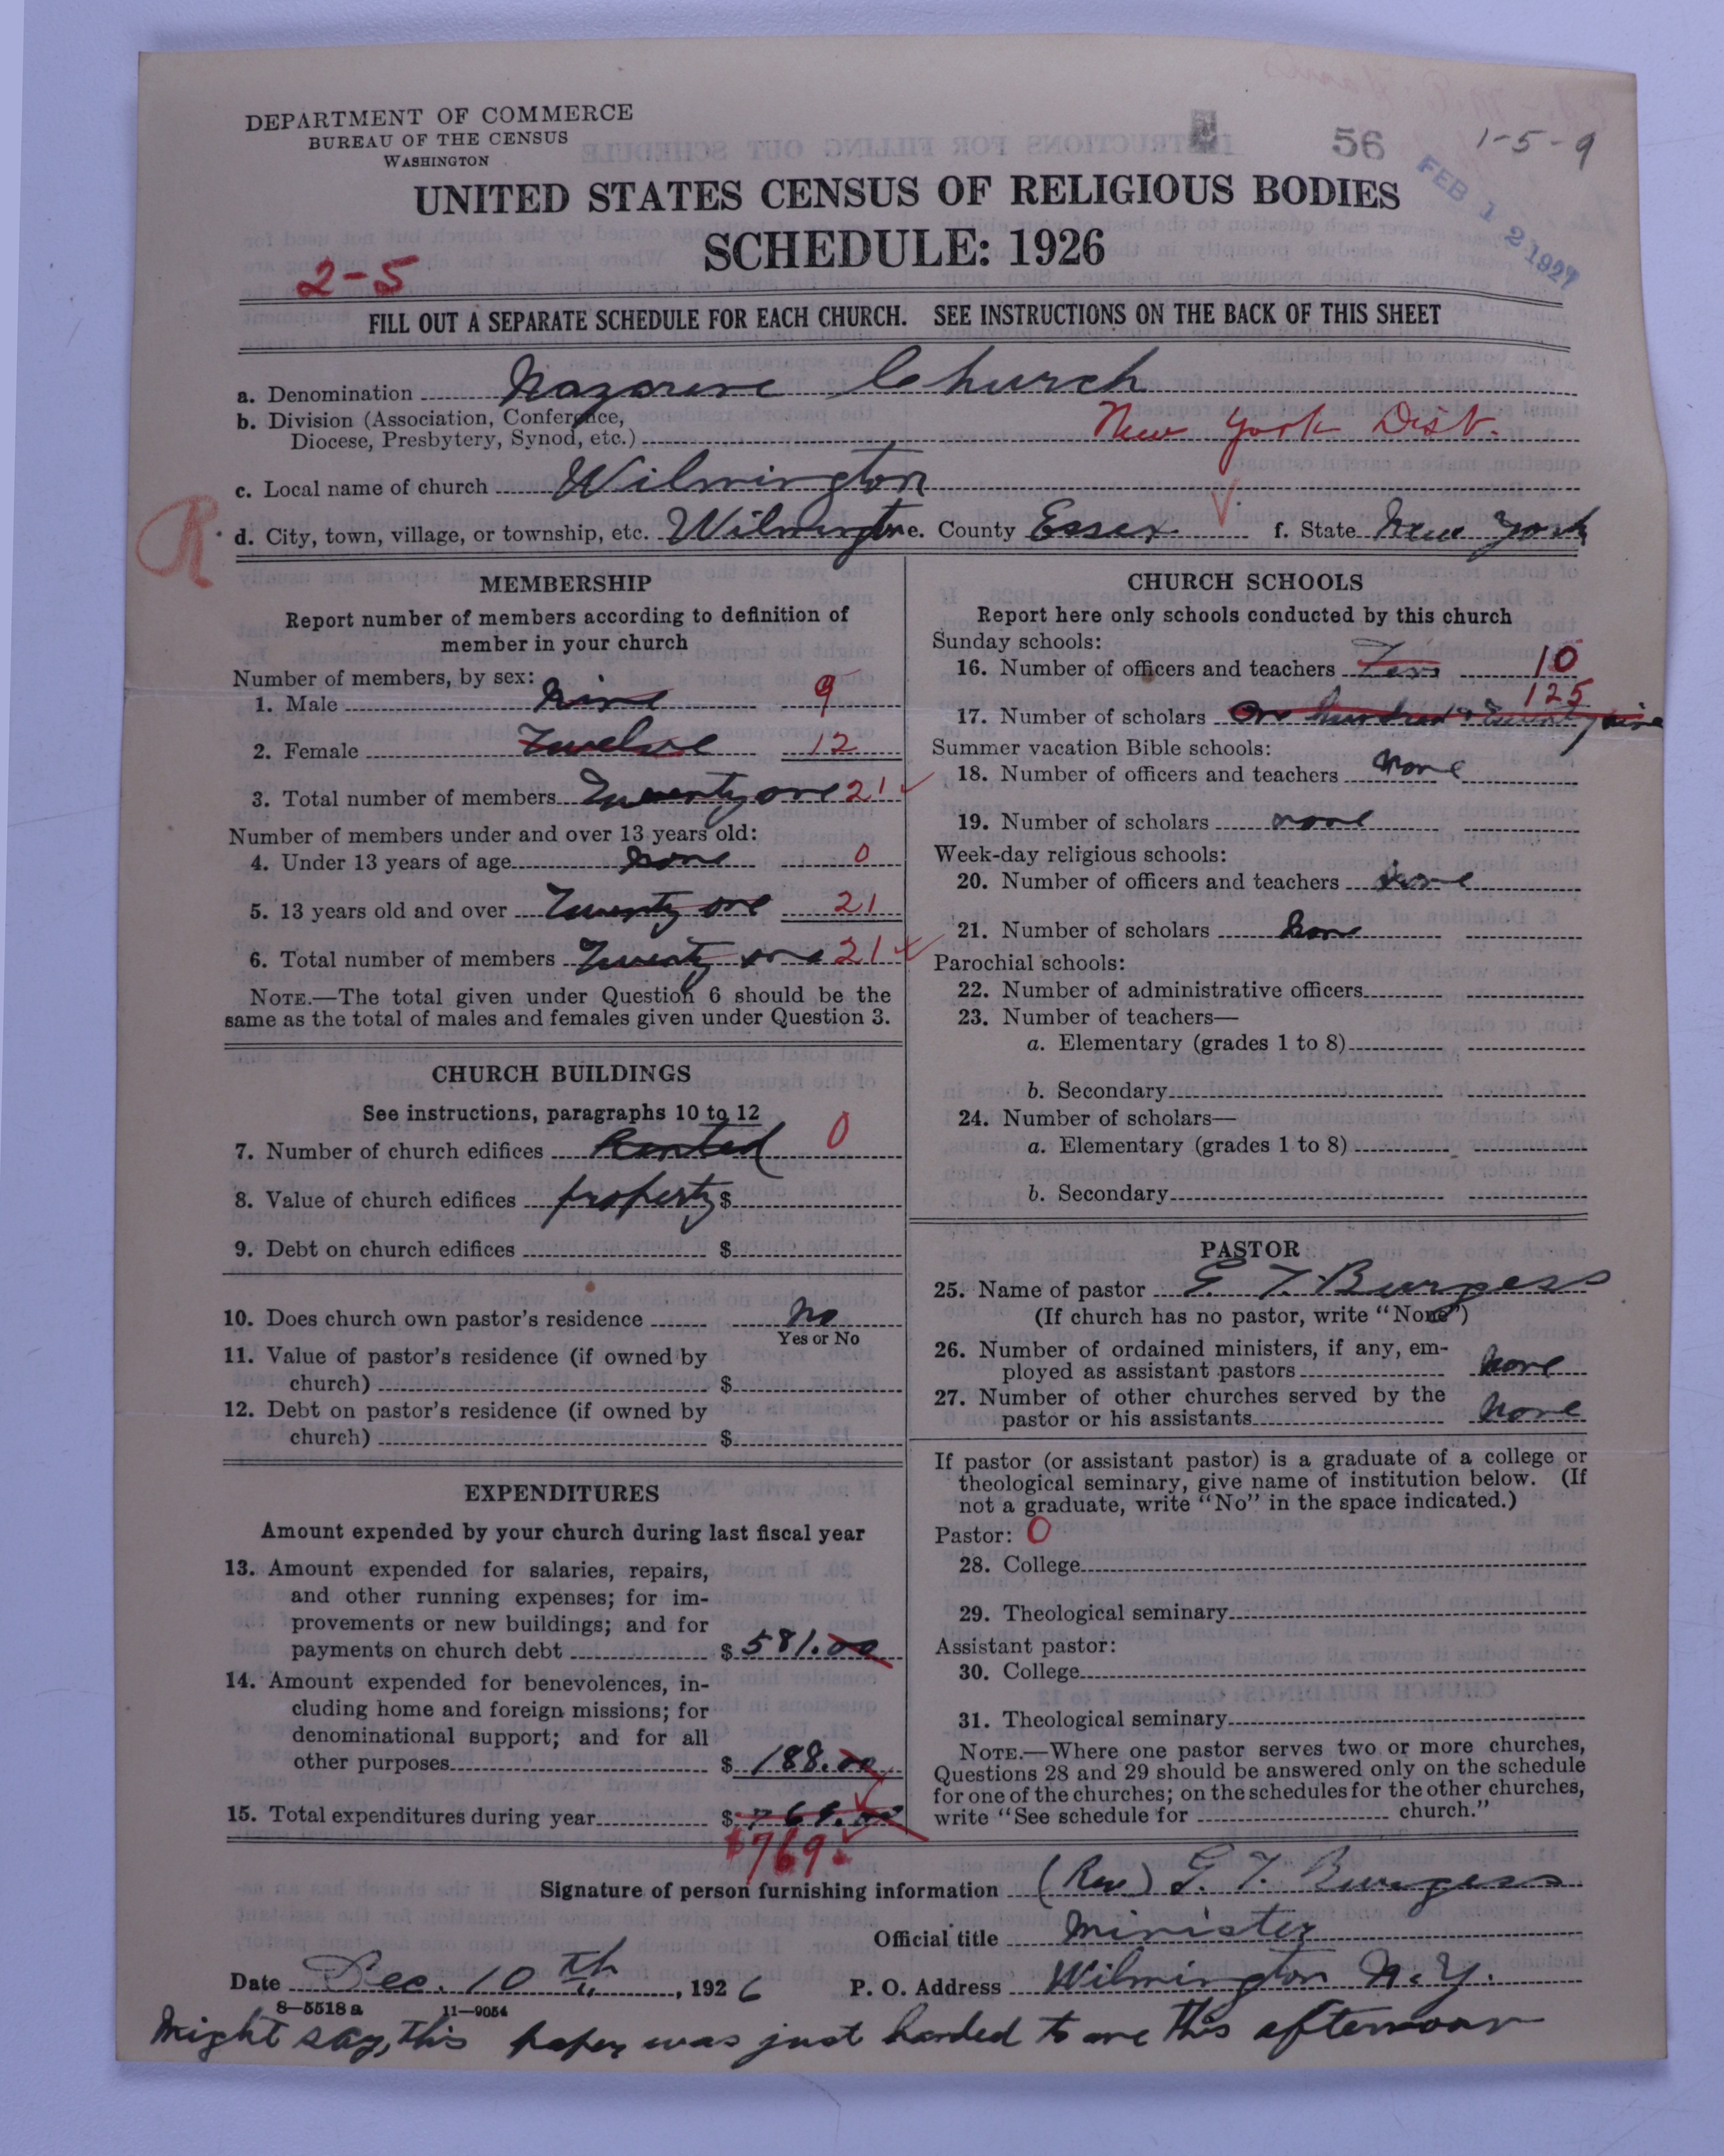 DEPARTMENT OF COMMERCE
BUREAU OF THE CENSUS
WASHINGTON
56
1-5-9
FEB 12 1927
UNITED STATES CENSUS OF RELIGIOUS BODIES
SCHEDULE: 1926
2-5
FILL OUT A SEPARATE SCHEDULE FOR EACH CHURCH. SEE INSTRUCTIONS ON THE BACK OF THIS SHEET
a. Denomination Nazarene Church
b. Division (Association, Conference,
Diocese, Presbytery, Synod, etc.) New York Dist.
c. Local name of church Wilmington
R
d. City, town, village, or township, etc. Wilmington e. County Essex f. State New York
MEMBERSHIP
Report number of members according to definition of
member in your church
Number of members, by sex:
1. Male Nine 9
2. Female Twelve 12
3. Total number of members Twenty one 21
Number of members under and over 13 years old:
4. Under 13 years of age None 0
5. 13 years old and over Twenty one 21
6. Total number of members Twenty one 21
NOTE.—The total given under Question 6 should be the
same as the total of males and females given under Question 3.
CHURCH BUILDINGS
See instructions, paragraphs 10 to 12
7. Number of church edifices Rented 0
8. Value of church edifices property $
9. Debt on church edifices $
10. Does church own pastor's residence No
Yes or No
11. Value of pastor's residence (if owned by
church) $
12. Debt on pastor's residence (if owned by
church) $
EXPENDITURES
Amount expended by your church during last fiscal year
13. Amount expended for salaries, repairs,
and other running expenses; for im-
provements or new buildings; and for
payments on church debt $ 581.00
14. Amount expended for benevolences, in-
cluding home and foreign missions; for
denominational support; and for all
other purposes $ 188.00
15. Total expenditures during year $ 769.00
$769.
CHURCH SCHOOLS
Report here only schools conducted by this church
Sunday schools:
16. Number of officers and teachers Ten 10
125
17. Number of scholars One hundred & twenty five
Summer vacation Bible schools:
18. Number of officers and teachers None
19. Number of scholars none
Week-day religious schools:
20. Number of officers and teachers None
21. Number of scholars None
Parochial schools:
22. Number of administrative officers
23. Number of teachers—
a. Elementary (grades 1 to 8)
b. Secondary
24. Number of scholars—
a. Elementary (grades 1 to 8)
b. Secondary
PASTOR
25. Name of pastor G. T. Burgess
(If church has no pastor, write "None")
26. Number of ordained ministers, if any, em-
ployed as assistant pastors None
27. Number of other churches served by the
pastor or his assistants None
If pastor (or assistant pastor) is a graduate of a college or
theological seminary, give name of institution below. (If
not a graduate, write "No" in the space indicated.)
Pastor: 0
28. College
29. Theological seminary
Assistant pastor:
30. College
31. Theological seminary
NOTE.—Where one pastor serves two or more churches,
Questions 28 and 29 should be answered only on the schedule
for one of the churches; on the schedules for the other churches,
write "See schedule for church."
Signature of person furnishing information (Rev) G. T. Burgess
Official title Minister
Date Dec. 10th, 1926 P. O. Address Wilmington N.Y.
8—5518a 11—9054
Might say, this paper was just handed to me this afternoon